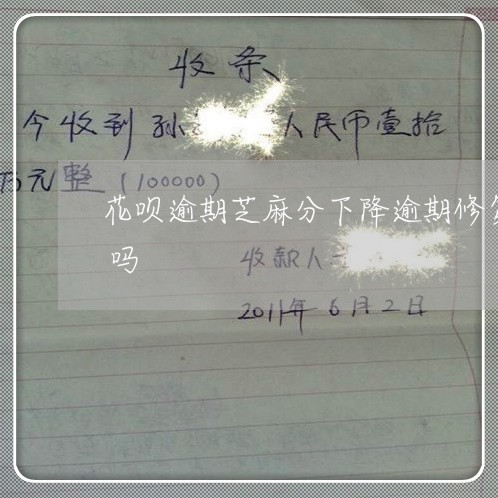 收条
今收到 孙 人民币壹拾
万元整 (100000)
花呗逾期芝麻分下降逾期修
吗
收款人
2011年6月2日